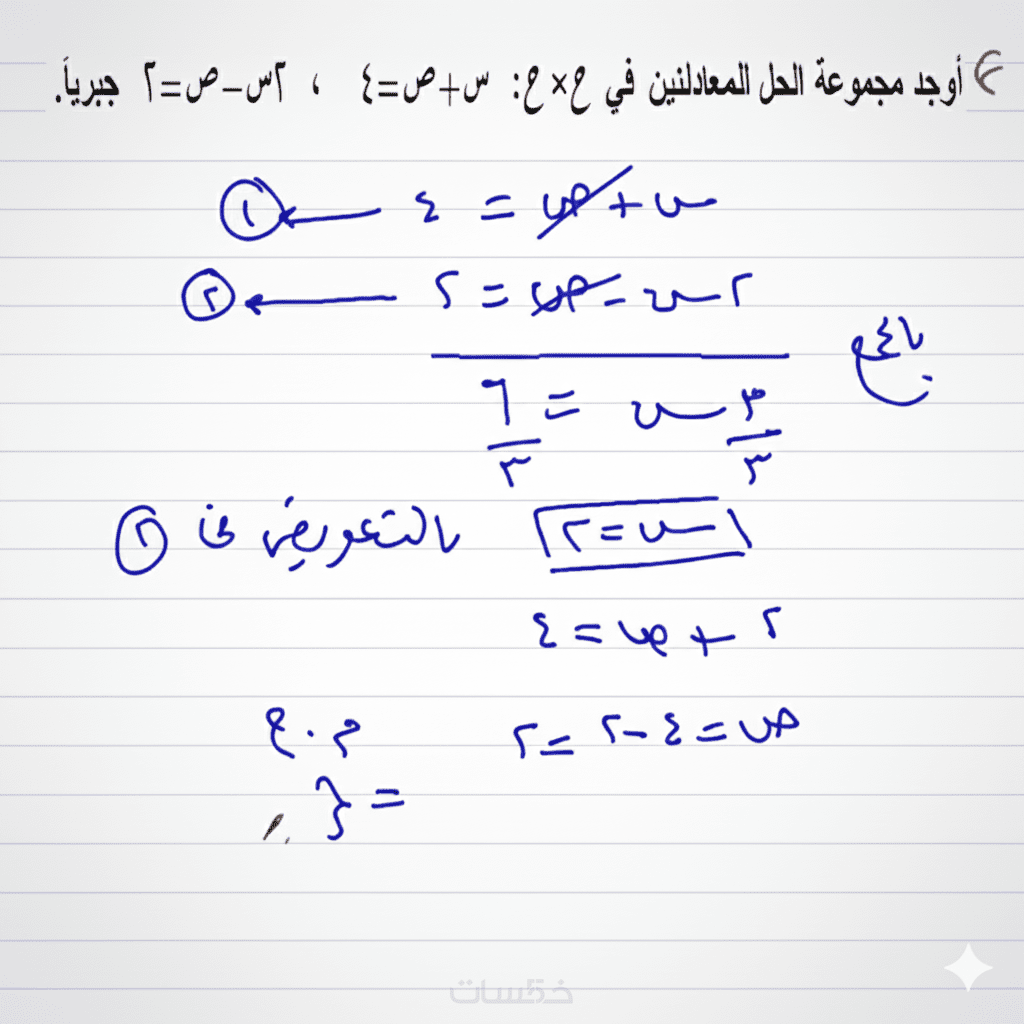 أوجد مجموعة الحل المعادلنين في ح×ح: س+ص=٤ ، ٢س–ص=٢ جبرياً.
س + ص = ٤ ← ①
٢س - ص = ٢ ← ②
بالجمع
٣ س = ٦
٣ ٣
س = ٢ بالتعويض في ①
٢ + ص = ٤
ص = ٤ - ٢ = ٢
م . ح
= {
خمسات